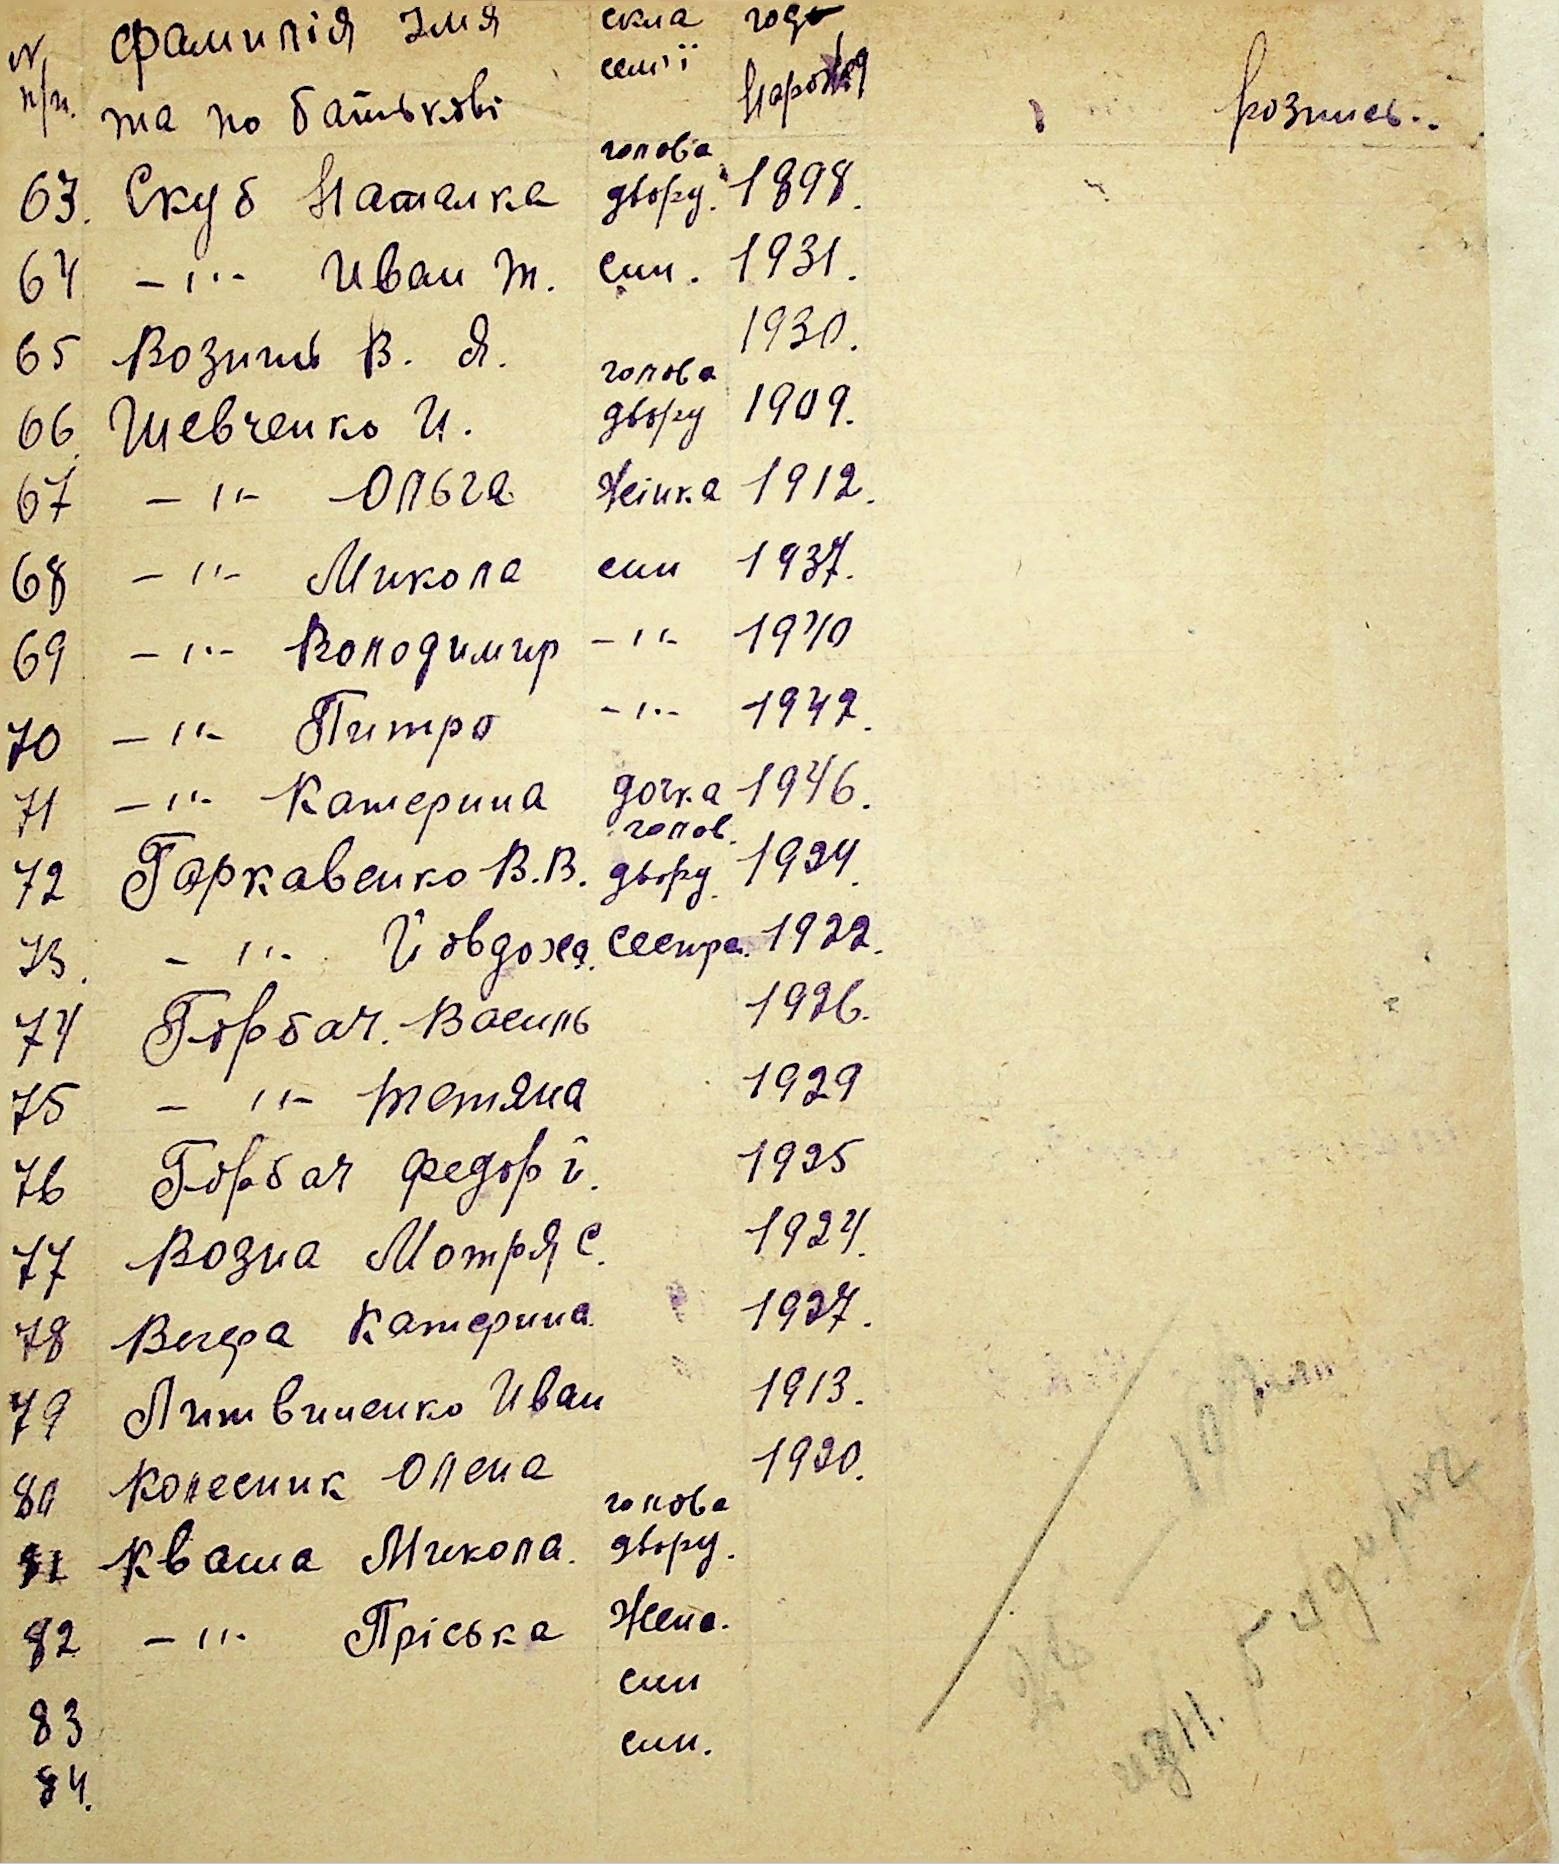 N п/п. фамилія імя та по батькові скла семії годь нарожд розпись..
63. Скуб Наталка голова двору. 1898.
64 -"- Иван Т. син. 1931.
65 Возиль В. Я. 1930.
66. Шевченко И. голова двору 1909.
67 -"- Ольга жінка 1912.
68 -"- Микола син 1937.
69 -"- Володимир -"- 1940
70 -"- Питро -"- 1942.
71 -"- Катерина дочка 1946.
72 Гаркавенко В.В. голов. двору. 1924.
73. -"- Йовдоха. сестра. 1922.
74 Горбач. Василь 1926.
75 -"- Тетяна 1929
76 Горбач Федор і. 1925
77 Возна Мотря С. 1924.
78 Вегера Катерина. 1927.
79 Литвиненко Иван 1913.
80 Колесник Олена 1920.
81 Кваша Микола. голова двору.
82 -"- Пріська жена.
83 син
84. син.